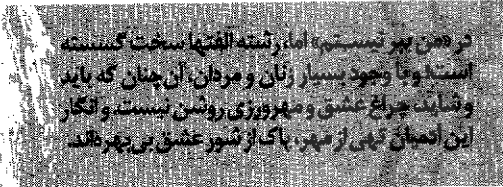 در «من ببر نیستم» اما، رشته الفتها سخت گسسته
است! و با وجود بسیار زنان و مردان، آن چنان که باید
و شاید، چراغ عشق و مهرورزی روشن نیست. و انگار
این آدمیان تهی از مهر، پاک از شور عشق بی‌بهره‌اند.